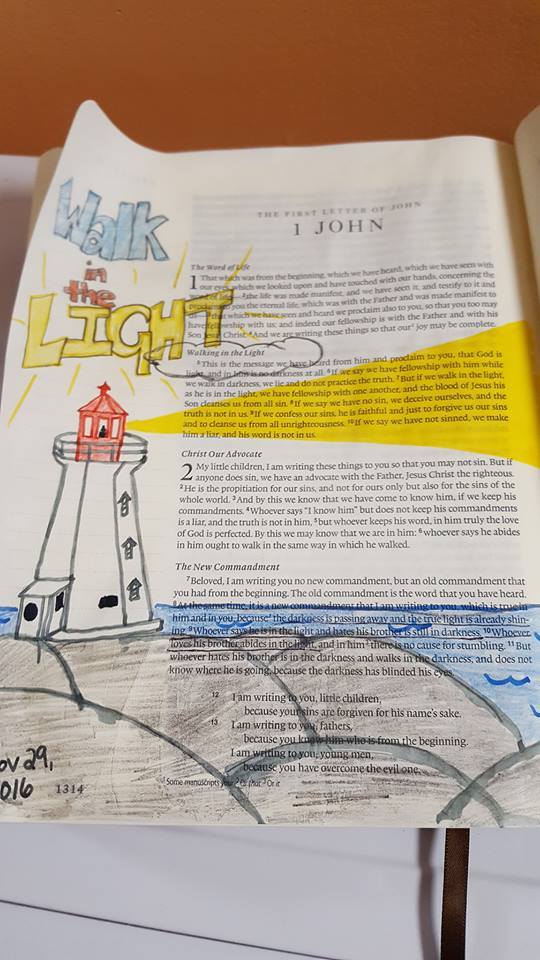 Walk
in
the
LIGHT
THE FIRST LETTER OF JOHN
1 JOHN
The Word of Life
1 That which was from the beginning, which we have heard, which we have seen with
our eyes, which we looked upon and have touched with our hands, concerning the
word of life— ²the life was made manifest, and we have seen it, and testify to it and
proclaim to you the eternal life, which was with the Father and was made manifest to
us— ³that which we have seen and heard we proclaim also to you, so that you too may
have fellowship with us; and indeed our fellowship is with the Father and with his
Son Jesus Christ. ⁴And we are writing these things so that our¹ joy may be complete.
Walking in the Light
⁵This is the message we have heard from him and proclaim to you, that God is
light, and in him is no darkness at all. ⁶If we say we have fellowship with him while
we walk in darkness, we lie and do not practice the truth. ⁷But if we walk in the light,
as he is in the light, we have fellowship with one another, and the blood of Jesus his
Son cleanses us from all sin. ⁸If we say we have no sin, we deceive ourselves, and the
truth is not in us. ⁹If we confess our sins, he is faithful and just to forgive us our sins
and to cleanse us from all unrighteousness. ¹⁰If we say we have not sinned, we make
him a liar, and his word is not in us.
Christ Our Advocate
2 My little children, I am writing these things to you so that you may not sin. But if
anyone does sin, we have an advocate with the Father, Jesus Christ the righteous.
²He is the propitiation for our sins, and not for ours only but also for the sins of the
whole world. ³And by this we know that we have come to know him, if we keep his
commandments. ⁴Whoever says "I know him" but does not keep his commandments
is a liar, and the truth is not in him, ⁵but whoever keeps his word, in him truly the love
of God is perfected. By this we may know that we are in him: ⁶whoever says he abides
in him ought to walk in the same way in which he walked.
The New Commandment
⁷Beloved, I am writing you no new commandment, but an old commandment that
you had from the beginning. The old commandment is the word that you have heard.
⁸At the same time, it is a new commandment that I am writing to you, which is true in
him and in you, because² the darkness is passing away and the true light is already shin-
ing. ⁹Whoever says he is in the light and hates his brother is still in darkness. ¹⁰Whoever
loves his brother abides in the light, and in him³ there is no cause for stumbling. ¹¹But
whoever hates his brother is in the darkness and walks in the darkness, and does not
know where he is going, because the darkness has blinded his eyes.
12 I am writing to you, little children,
because your sins are forgiven for his name's sake.
13 I am writing to you, fathers,
because you know him who is from the beginning.
I am writing to you, young men,
because you have overcome the evil one.
¹ Some manuscripts your ² Or that ³ Or it
ov 29,
016
1314